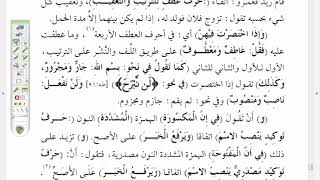 قام زيد فعمرو: الفاء: (حَرْفُ عَطْفٍ لِلتَّرْتِيبِ وَالتَّعْقِيبِ)، وتعقيب كل
شيء بحسبه تقول: تزوج فلان فولد له، إذا لم يكن بينهما إلا مدة الحمل.
(وَإِذَا اخْتَصَرْتَ فِيهِنَّ) أي: في أحرف العطف الأربعة
(فَقُلْ: عَاطِفٌ وَمَعْطُوفٌ) على طريق اللف والنشر على الترتيب،
الأول للأول والثاني للثاني (كَمَا تَقُولُ فِي نَحْوِ: بسم الله: جَارٌّ وَمَجْرُورٌ،
وَكَذَلِكَ) تقول إذا اختصرت (فِي نَحْوِ: ﴿لَن نَّبْرَحَ﴾ [طه: ٩١] وَلَنْ نَفْعَلَ:
نَاصِبٌ وَمَنْصُوبٌ) وفي نحو: لم يقم: جازم ومجزوم.
(وَ) أَنْ تَقُولَ (فِي إِنَّ الْمَكْسُورَةِ) الهمزة (الْمُشَدَّدَةِ) النون (حَرْفُ
تَوْكِيدٍ يَنْصِبُ الِاسْمَ) اتفاقا (وَيَرْفَعُ الْخَبَرَ) على الأصح (وَ) تزيد على
ذلك (فِي أَنَّ الْمَفْتُوحَةِ) الهمزة المشددة النون مصدرية، فتقول: أَنَّ (حَرْفُ
تَوْكِيدٍ مَصْدَرِيٌّ يَنْصِبُ الِاسْمَ) اتفاقا (وَيَرْفَعُ الْخَبَرَ) على الأصح